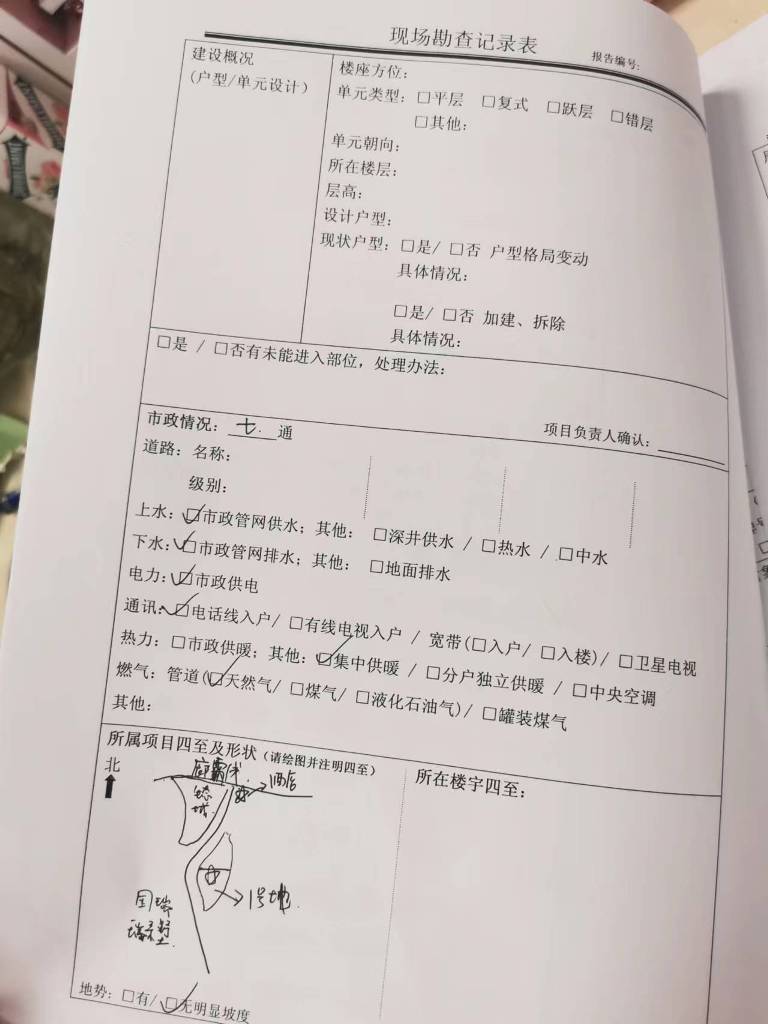 现场勘查记录表
报告编号:
建设概况
(户型/单元设计)
楼座方位:
单元类型: □平层 □复式 □跃层 □错层
□其他:
单元朝向:
所在楼层:
层高:
设计户型:
现状户型: □是/ □否 户型格局变动
具体情况:
□是/ □否 加建、拆除
具体情况:
□是 / □否有未能进入部位, 处理办法:
市政情况: 七. 通
项目负责人确认:
道路: 名称:
级别:
上水: ☑市政管网供水; 其他: □深井供水 / □热水 / □中水
下水: ☑市政管网排水; 其他: □地面排水
电力: ☑市政供电
通讯: ☑电话线入户/ □有线电视入户 / 宽带(□入户/ □入楼)/ □卫星电视
热力: □市政供暖; 其他: ☑集中供暖 / □分户独立供暖 / □中央空调
燃气: 管道(☑天然气/ □煤气/ □液化石油气)/ □罐装煤气
其他:
所属项目四至及形状 (请绘图并注明四至)
所在楼宇四至:
北
酒店
1号地
国瑞
地势: □有/ ☑无明显坡度